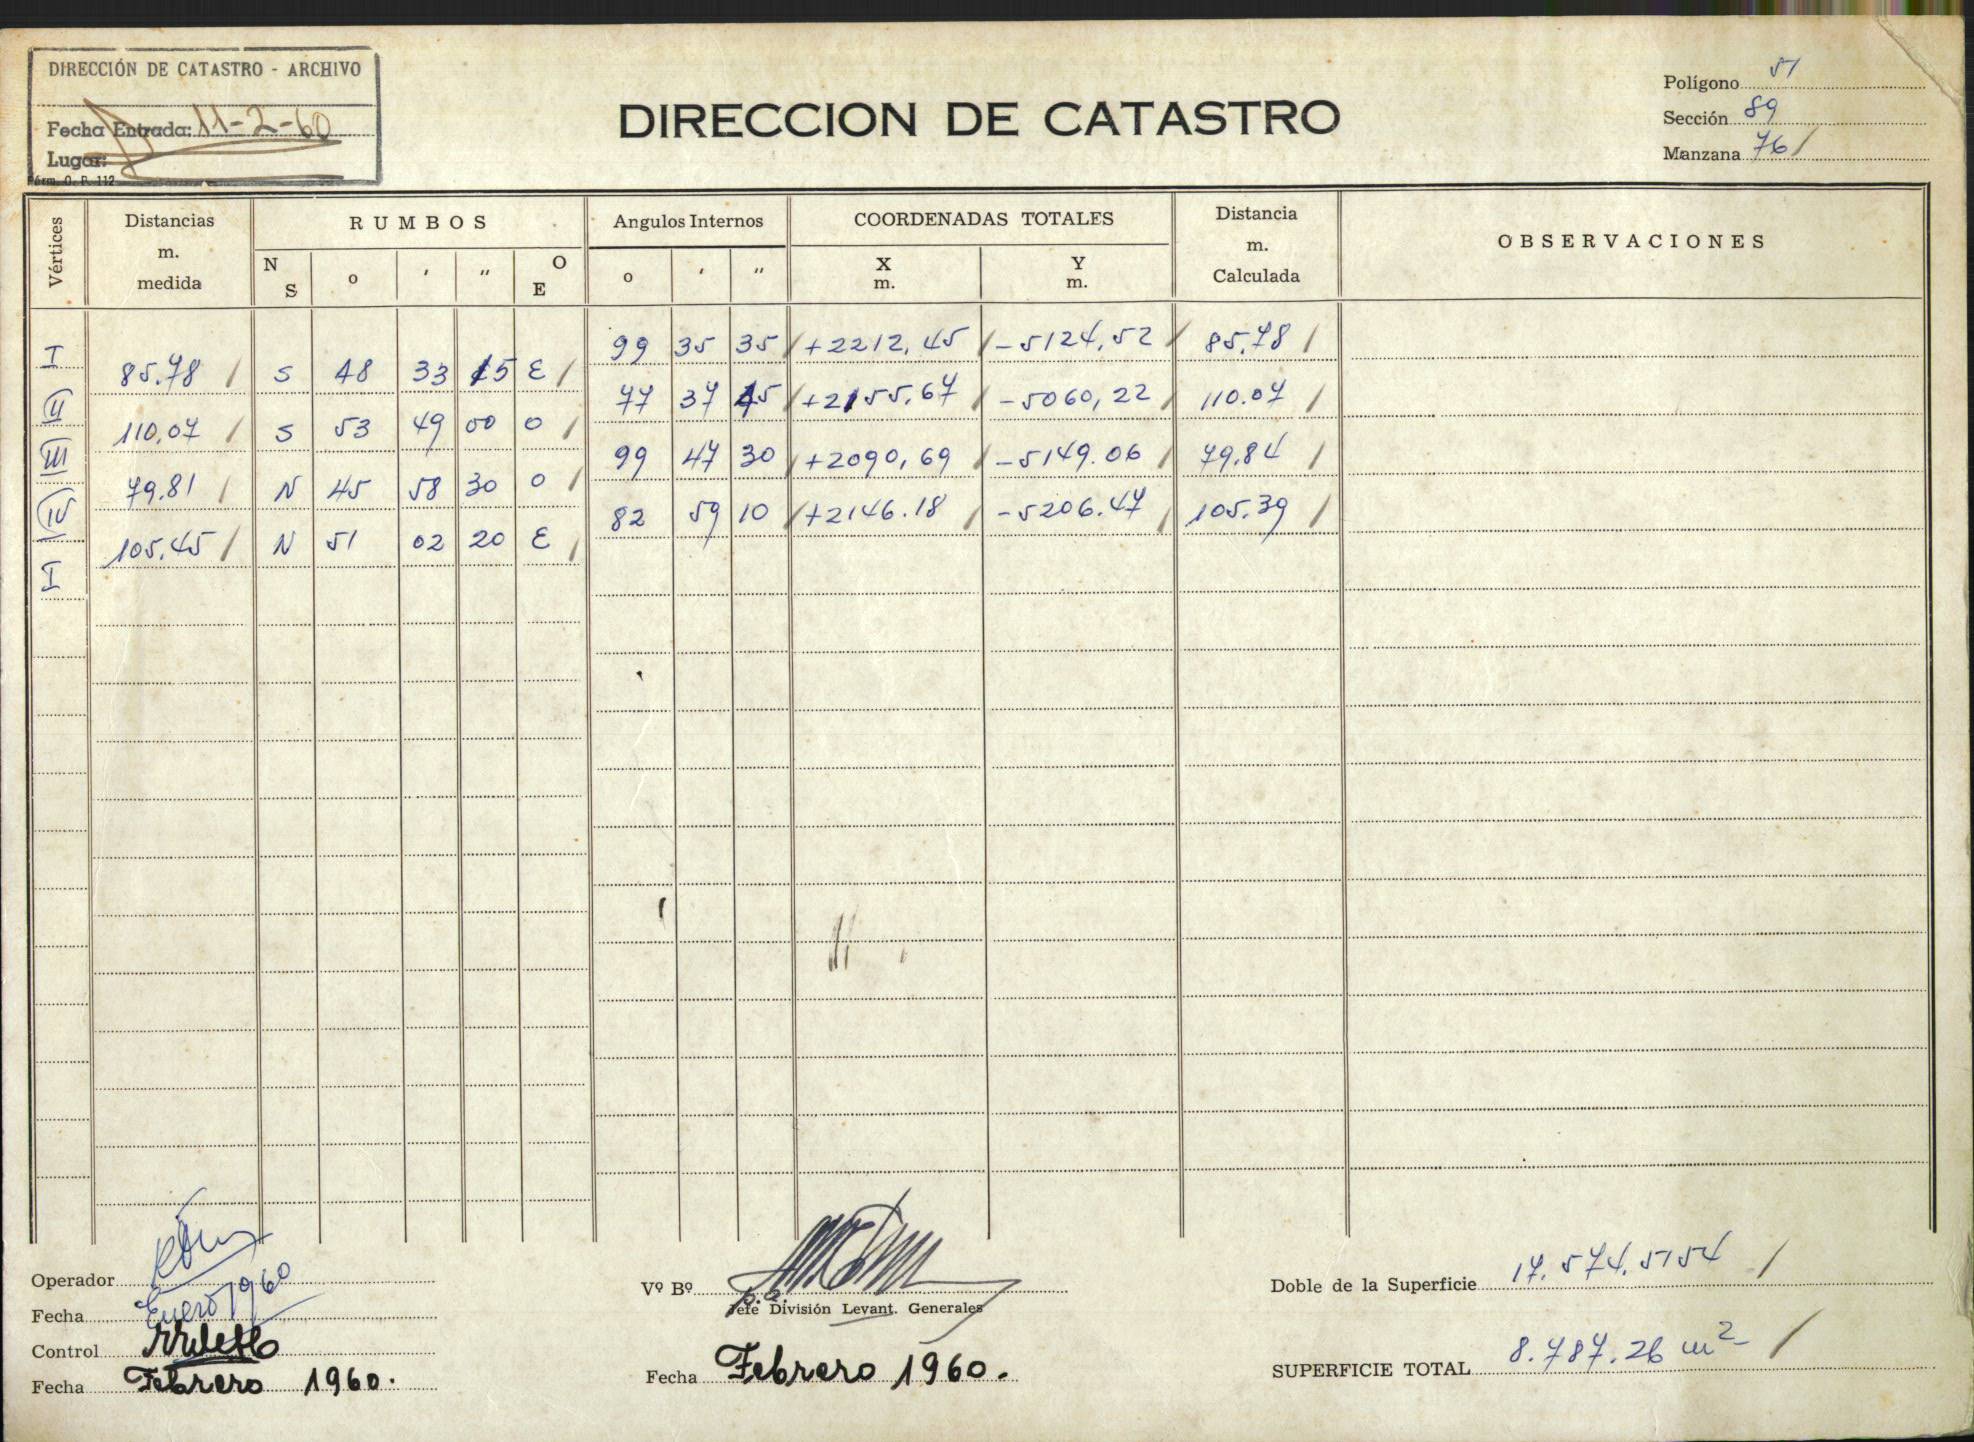 DIRECCIÓN DE CATASTRO - ARCHIVO
Fecha Entrada: 11-2-60
Lugar:
Fórm. O. P. 112
DIRECCION DE CATASTRO
Polígono 51
Sección 89
Manzana 76
Vértices
Distancias m. medida
RUMBOS
N S o ′ ″ O E
Angulos Internos
o ′ ″
COORDENADAS TOTALES
X m. Y m.
Distancia m. Calculada
OBSERVACIONES
I 99 35 35 +2212,45 -5124,52 85,78
85.78 S 48 33 15 E
II 77 37 45 +2155,67 -5060,22 110.07
110,07 S 53 49 00 O
III 99 47 30 +2090,69 -5149.06 79.84
79.81 N 45 58 30 O
IV 82 59 10 +2146.18 -5206.47 105.39
105.45 N 51 02 20 E
I
Operador
Fecha Enero/1960
Control
Fecha Febrero 1960.
Vº Bº
p.a.
Jefe División Levant. Generales
Fecha Febrero 1960.
Doble de la Superficie 17.574.5154
SUPERFICIE TOTAL 8.787.26 m2